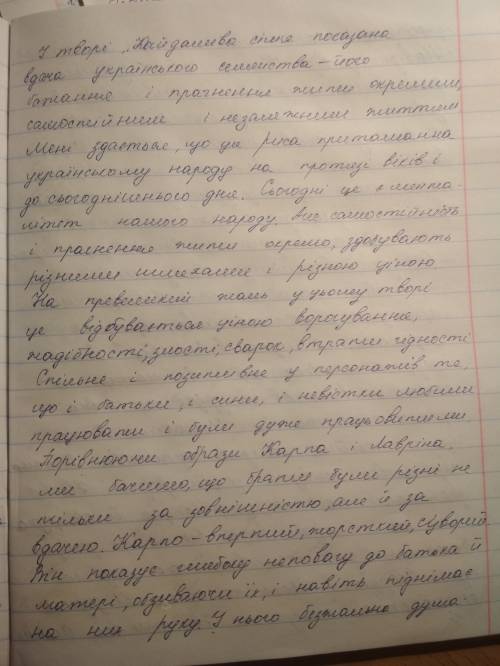 У творі „Кайдашева сім'я показана
вдача українського селянства – його
бажання і прагнення жити окремим,
самостійним і незалежним життям
Мені здається, що ця риса притаманна
українському народу на протязі віків і
до сьогоднішнього дня. Сьогодні це є мента-
літет нашого народу. Але самостійність
і прагнення жити окремо, здобувають
різними шляхами і різною ціною.
На превеликий жаль у цьому творі
це відбувається ціною ворогування,
жадібності, злості, сварок, втрати гідності
Спільне і позитивне у персонажів те,
що і батьки, і сини, і невістки любили
працювати і були дуже працьовитими
Порівнюючи образи Карпа і Лавріна,
ми бачимо, що брати були різні не
тільки за зовнішністю, але й за
вдачею. Карпо – впертий, жорсткий, суворий
Він показує глибоку неповагу до батька й
матері, обзиваючи їх, і навіть піднімає
на них руку. У нього безжальна душа.